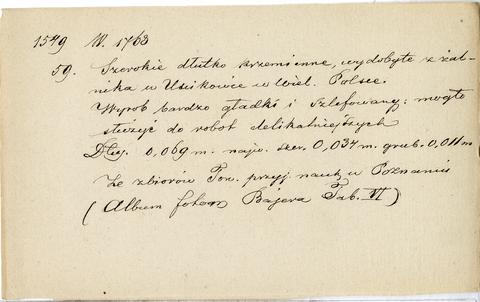 1549 N. 1768
59. Szerokie dłutko krzemienne, wydobyte z żal-
nika w Uścikowie w Wiel. Polsce.
Wyrób bardzo gładki i szlifowany; mogło
służyć do robót delikatniejszych
Dług. 0,069 m. najw. szer. 0,037 m. grub. 0,011 m
Ze zbiorów Tow. przyj. nauk w Poznaniu
(Album fotogr Bajera Tab. VI)